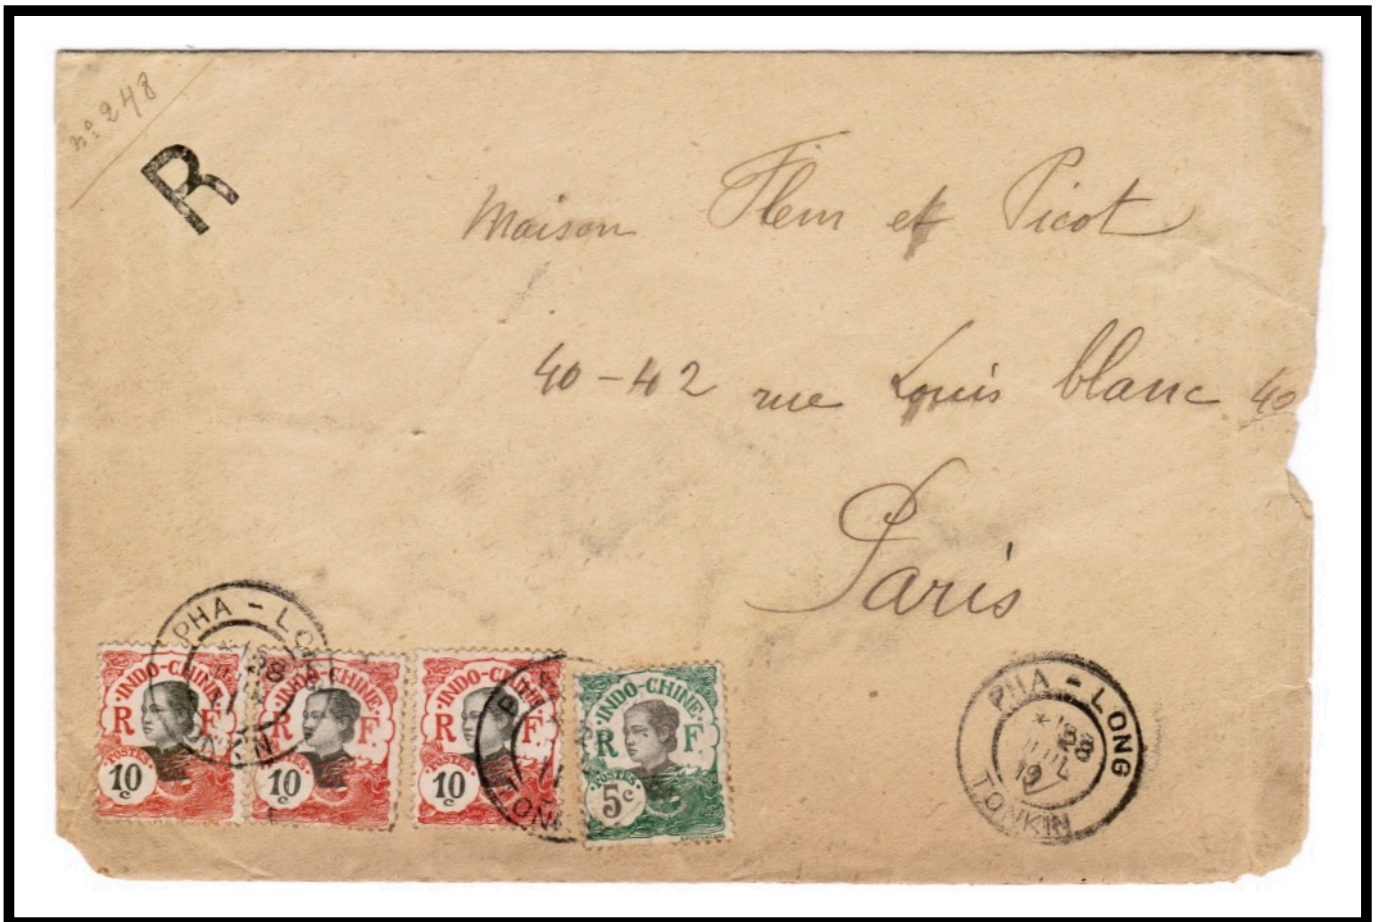 no: 248
R
Maison Fleur et Picot
40-42 rue Louis blanc 40
Paris
PHA - LONG
TONKIN
INDO-CHINE
R F
POSTES
10c
INDO-CHINE
R F
POSTES
10c
INDO-CHINE
R F
POSTES
10c
INDO-CHINE
R F
POSTES
5c
PHA - LONG
JUIL
TONKIN